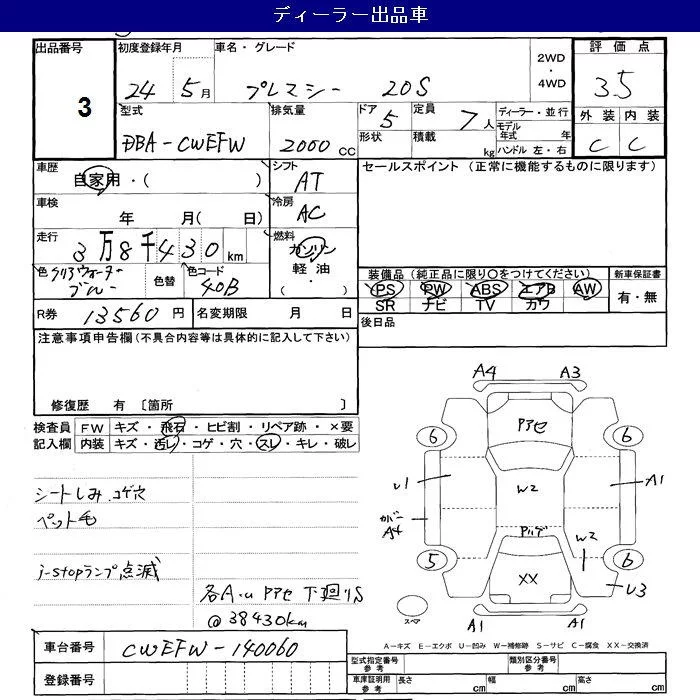 ディーラー出品車
出品番号
3
初度登録年月
24 5月
車名・グレード
プレマシー 20S
2WD
・
4WD
評価点
3.5
型式
DBA-CWEFW
排気量
2000 CC
ドア 5
形状
定員 7人
積載 kg
ディーラー・並行
モデル年式 年
ハンドル 左・右
外装 内装
C C
車歴
自家用・( )
シフト
AT
セールスポイント (正常に機能するものに限ります)
車検
年 月( 日)
冷房
AC
走行
3万8千430 km
燃料
ガソリン
軽油
・
色 クリアウォーターブルー
色替
色コード
40B
装備品 (純正品に限り〇をつけてください)
新車保証書
PS PW ABS エアB AW
SR ナビ TV カワ
有・無
R券 13560 円
名変期限 月 日
後日品
注意事項申告欄 (不具合内容等は具体的に記入して下さい)
修復歴 有 〔箇所 〕
検査員記入欄
FW キズ・飛石・ヒビ割・リペア跡・×要
内装 キズ・汚レ・コゲ・穴・スレ・キレ・破レ
シートしみ.コゲ穴
ペット毛
i-stopランプ点滅
各A.u Pアセ 下廻りS
@38430km
A4 A3
Pアセ
6 6
U1 W2 A1
カバー
A4
Pリデ W2
5 6
XX U3
スペア
A1 A1
A-キズ E-エクボ U-凹み W-補修跡 S-サビ C-腐食 XX-交換済
車台番号
CWEFW-140060
登録番号
型式指定番号
参考
類別区分番号
参考
車庫証明用
参考
長さ cm 幅 cm 高さ cm